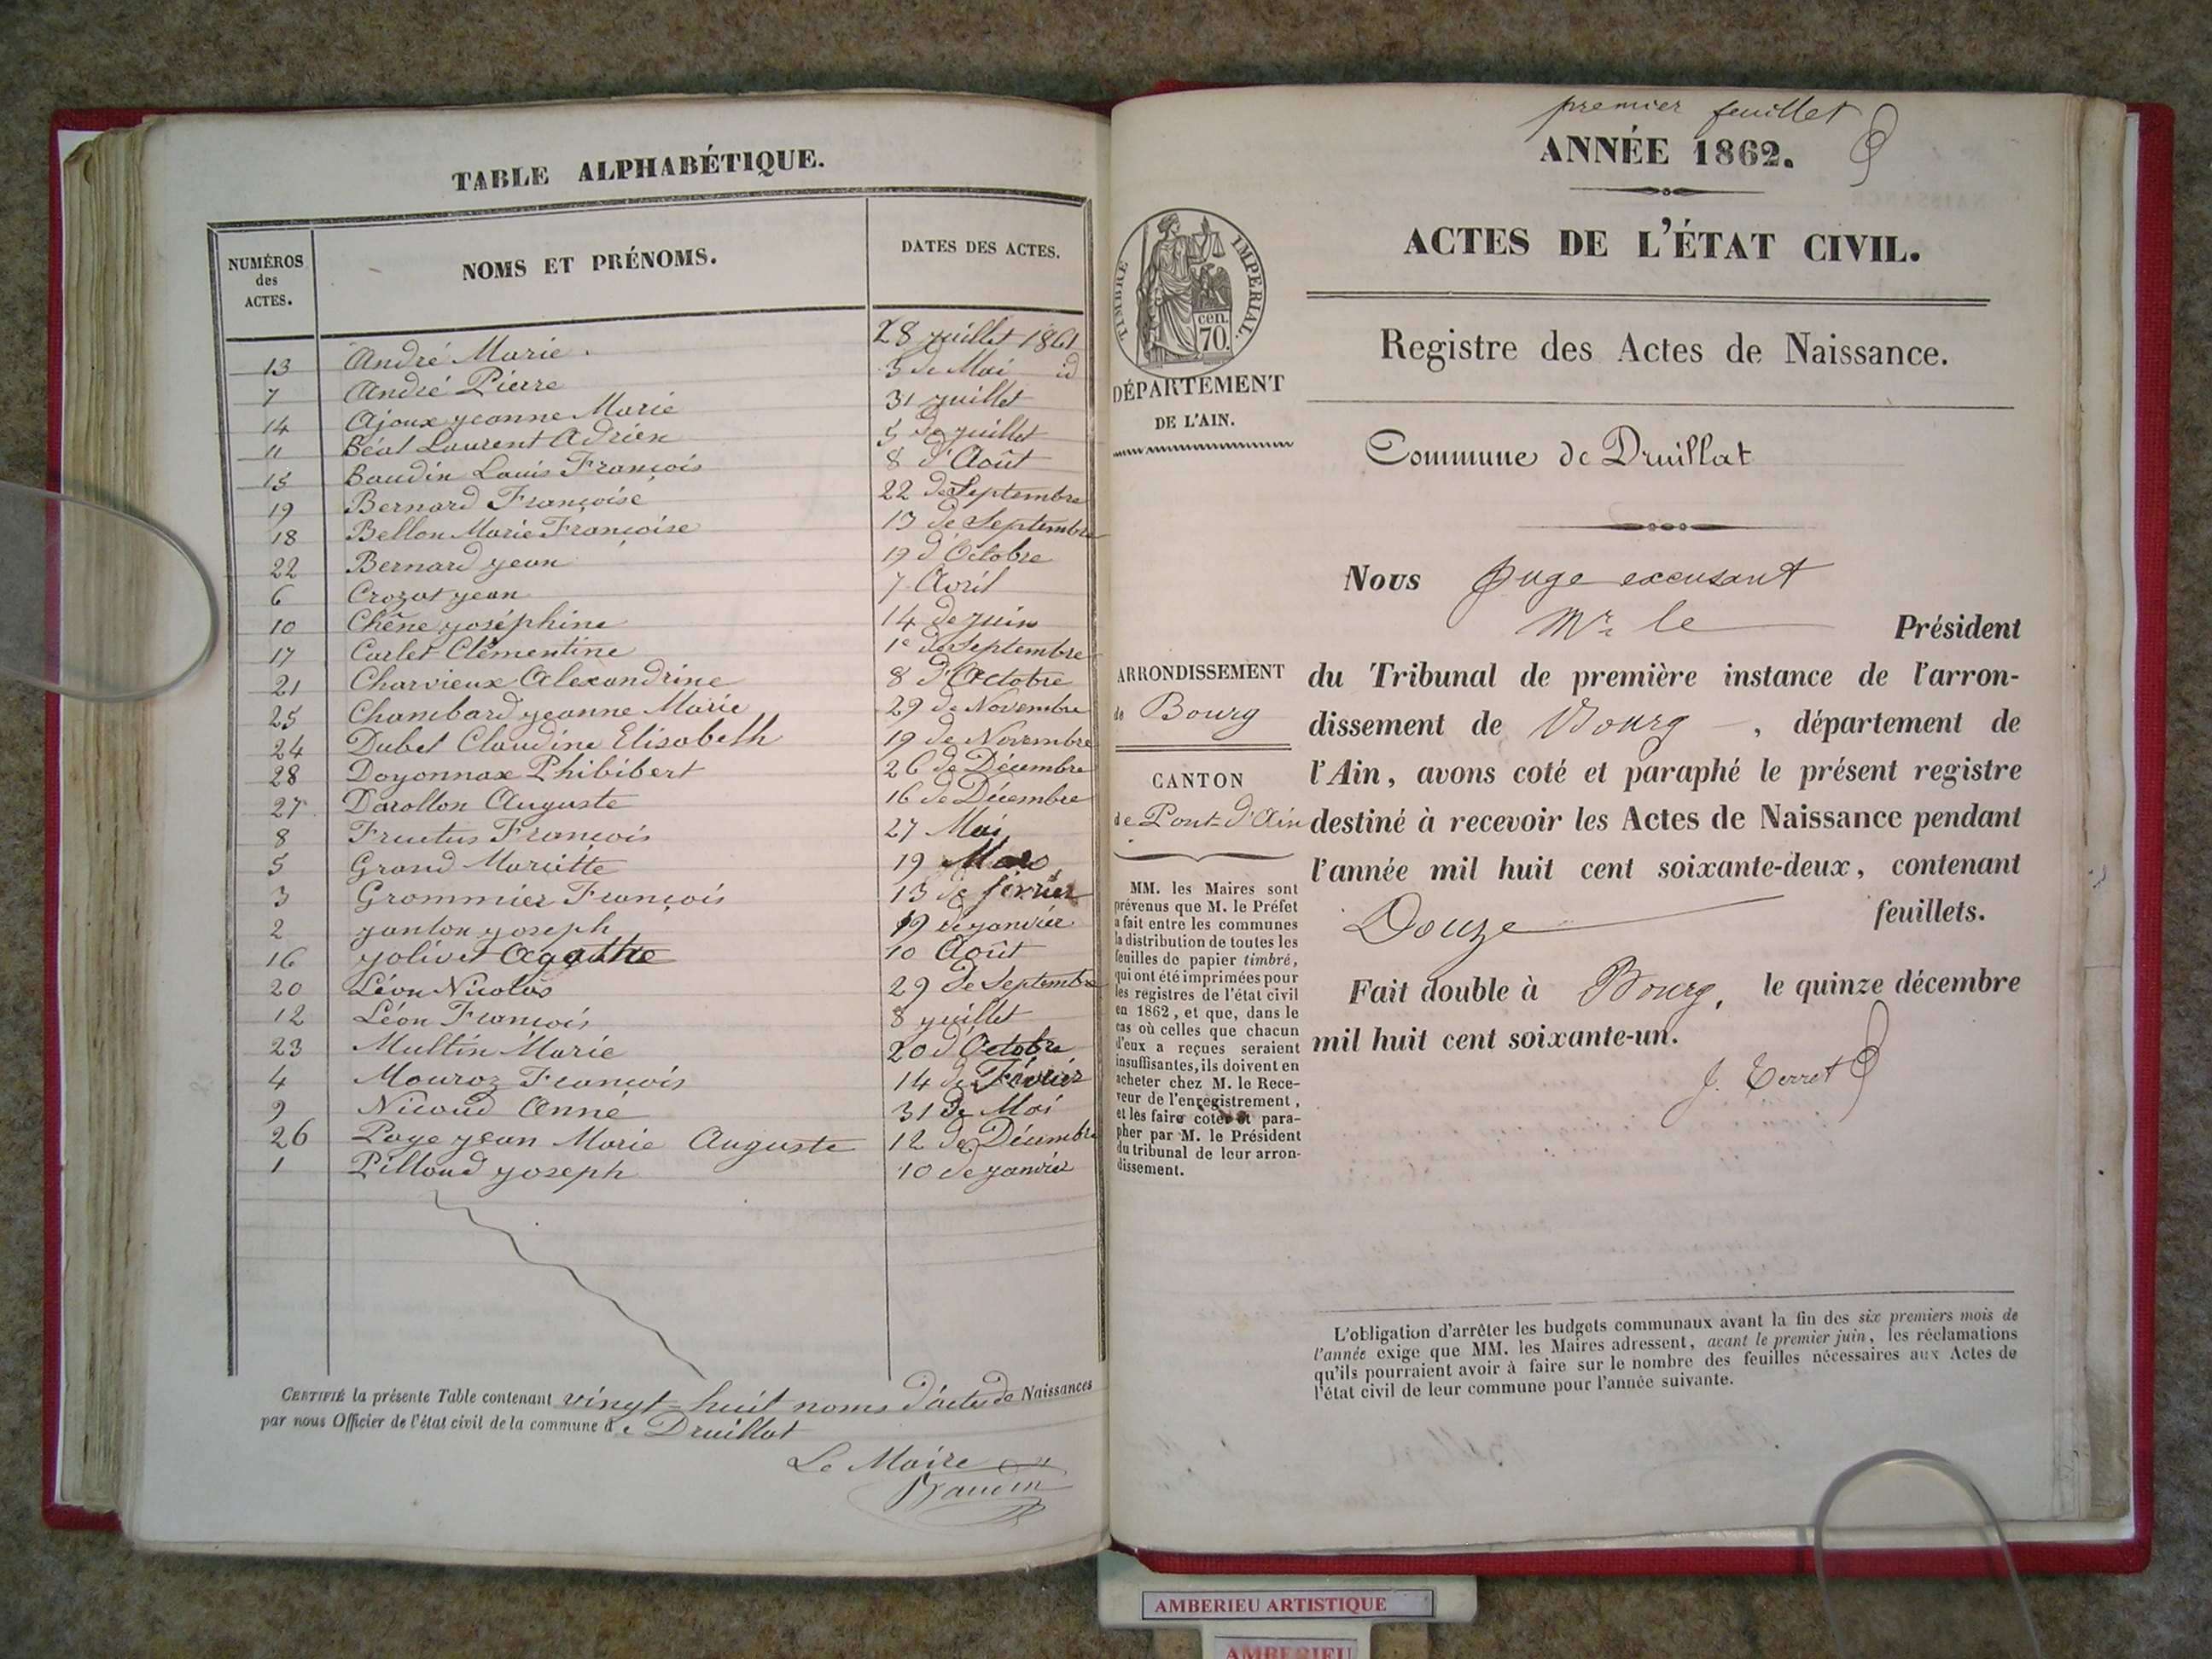 TABLE ALPHABÉTIQUE.
NUMÉROS des ACTES. NOMS ET PRÉNOMS. DATES DES ACTES.
13 André Marie. 28 juillet 1861
7 André Pierre 3 de Mai id
14 Ajoux jeanne Marie 31 juillet
11 Béat Laurent Adrien 5 de juillet
15 Baudin Louis François 8 d'Août
19 Bernard Françoise 22 de Septembre
18 Bellon Marie Françoise 13 de Septembre
22 Bernard jean 19 d'Octobre
6 Crozat jean 7 Avril
10 Chêne joséphine 14 de juin
17 Carlet Clémentine 1e de Septembre
21 Charvieux Alexandrine 8 d'Octobre
25 Chambard jeanne Marie 29 de Novembre
24 Dubet Claudine Elisabeth 19 de Novembre
28 Doyonnax Phibibert 26 de Décembre
27 Darollon Auguste 16 de Décembre
8 Fructus François 27 Mai
5 Grand Mariette 19 Mars
3 Grommier François 13 de février
2 janton joseph 19 de janvier
16 jolivet Agathe 10 Août
20 Léon Nicolas 29 de Septembre
12 Léon François 8 juillet
23 Multin Marie 20 d'Octobre
4 Mouroz François 14 de Février
9 Nicoud Anne 31 de Mai
26 Page jean Marie Auguste 12 de Décembre
1 Pilloud joseph 10 de janvier
CERTIFIÉ la présente Table contenant vingt-huit noms d'actes de Naissances
par nous Officier de l'état civil de la commune de Druillat
Le Maire
Baudin
premier feuillet
ANNÉE 1862.
ACTES DE L'ÉTAT CIVIL.
TIMBRE IMPÉRIAL.
cen. 70.
Registre des Actes de Naissance.
DÉPARTEMENT
DE L'AIN.
Commune de Druillat
Nous juge excusant
Mr le Président
du Tribunal de première instance de l'arron-
dissement de Bourg, département de
l'Ain, avons coté et paraphé le présent registre
destiné à recevoir les Actes de Naissance pendant
l'année mil huit cent soixante-deux, contenant
Douze feuillets.
Fait double à Bourg, le quinze décembre
mil huit cent soixante-un.
J. Terret
ARRONDISSEMENT
de Bourg
CANTON
de Pont-d'Ain
MM. les Maires sont
prévenus que M. le Préfet
a fait entre les communes
la distribution de toutes les
feuilles de papier timbré,
qui ont été imprimées pour
les registres de l'état civil
en 1862, et que, dans le
cas où celles que chacun
d'eux a reçues seraient
insuffisantes, ils doivent en
acheter chez M. le Rece-
veur de l'enregistrement,
et les faire coter et para-
pher par M. le Président
du tribunal de leur arron-
dissement.
L'obligation d'arrêter les budgets communaux avant la fin des six premiers mois de
l'année exige que MM. les Maires adressent, avant le premier juin, les réclamations
qu'ils pourraient avoir à faire sur le nombre des feuilles nécessaires aux Actes de
l'état civil de leur commune pour l'année suivante.
AMBERIEU ARTISTIQUE
AMBERIEU